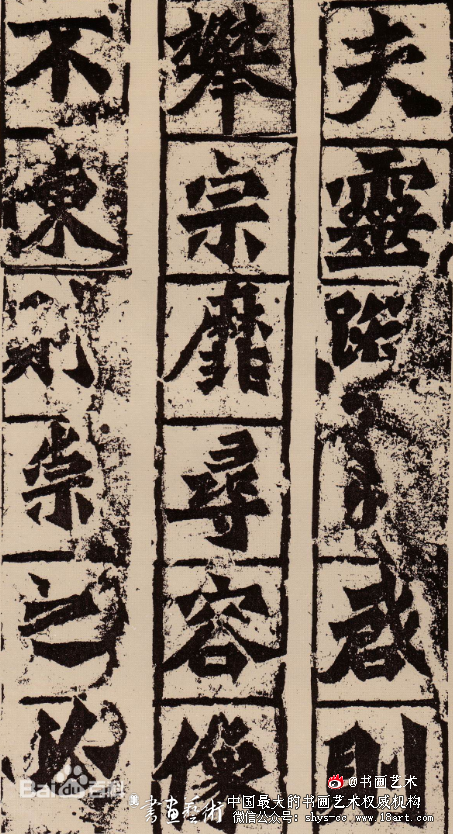 夫靈蹤□啟則
攀宗靡尋容像
不陳則崇之必
@书画艺术
书画艺术
中国最大的书画艺术权威机构
微信公众号: shys-cc www.18art.com
Baidu百科